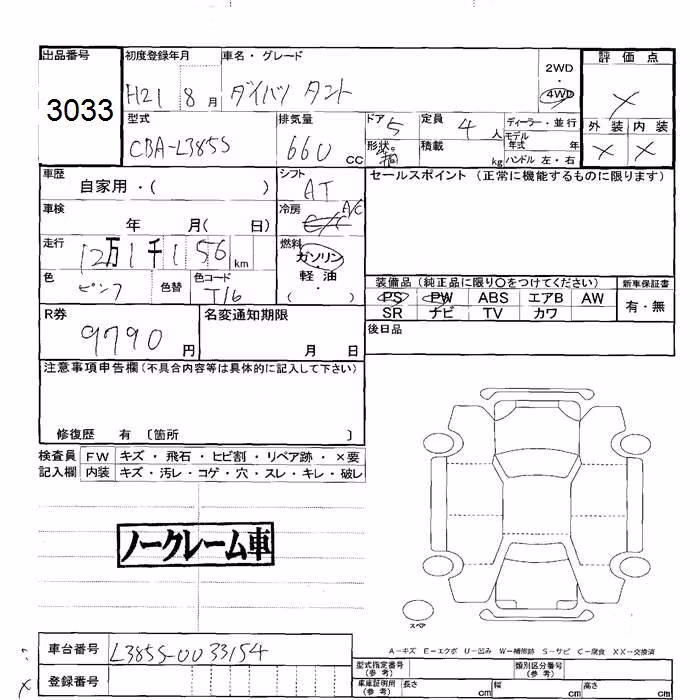 出品番号 初度登録年月 車名・グレード 評価点
3033 H21 8月 ダイハツ タント 2WD ・ 4WD ×
外装 内装
× ×
型式 排気量 ドア 5 定員 4人 ディーラー・並行
CBA-L385S 660cc 形状 積載 kg モデル年式 年
ハンドル 左・右
車歴 シフト セールスポイント (正常に機能するものに限ります)
自家用・( ) AT
車検 年 月( 日) 冷房 A/C
走行 12万1千156km 燃料 ガソリン・軽油・( )
色 ピンク 色替 色コード T16
装備品 (純正品に限り○をつけてください) 新車保証書
PS PW ABS エアB AW 有・無
SR ナビ TV カワ
R券 9790円 名変通知期限 月 日 後日品
注意事項申告欄 (不具合内容等は具体的に記入して下さい)
修復歴 有 〔箇所 〕
検査員 FW キズ・飛石・ヒビ割・リペア跡・×要
記入欄 内装 キズ・汚レ・コゲ・穴・スレ・キレ・破レ
ノークレーム車
スペア
A-キズ E-エクボ U-凹み W-補修跡 S-サビ C-腐食 XX-交換済
車台番号 L385S-0033154
型式指定番号(参考) 類別区分番号(参考)
登録番号 車庫証明用(参考) 長さ cm 幅 cm 高さ cm